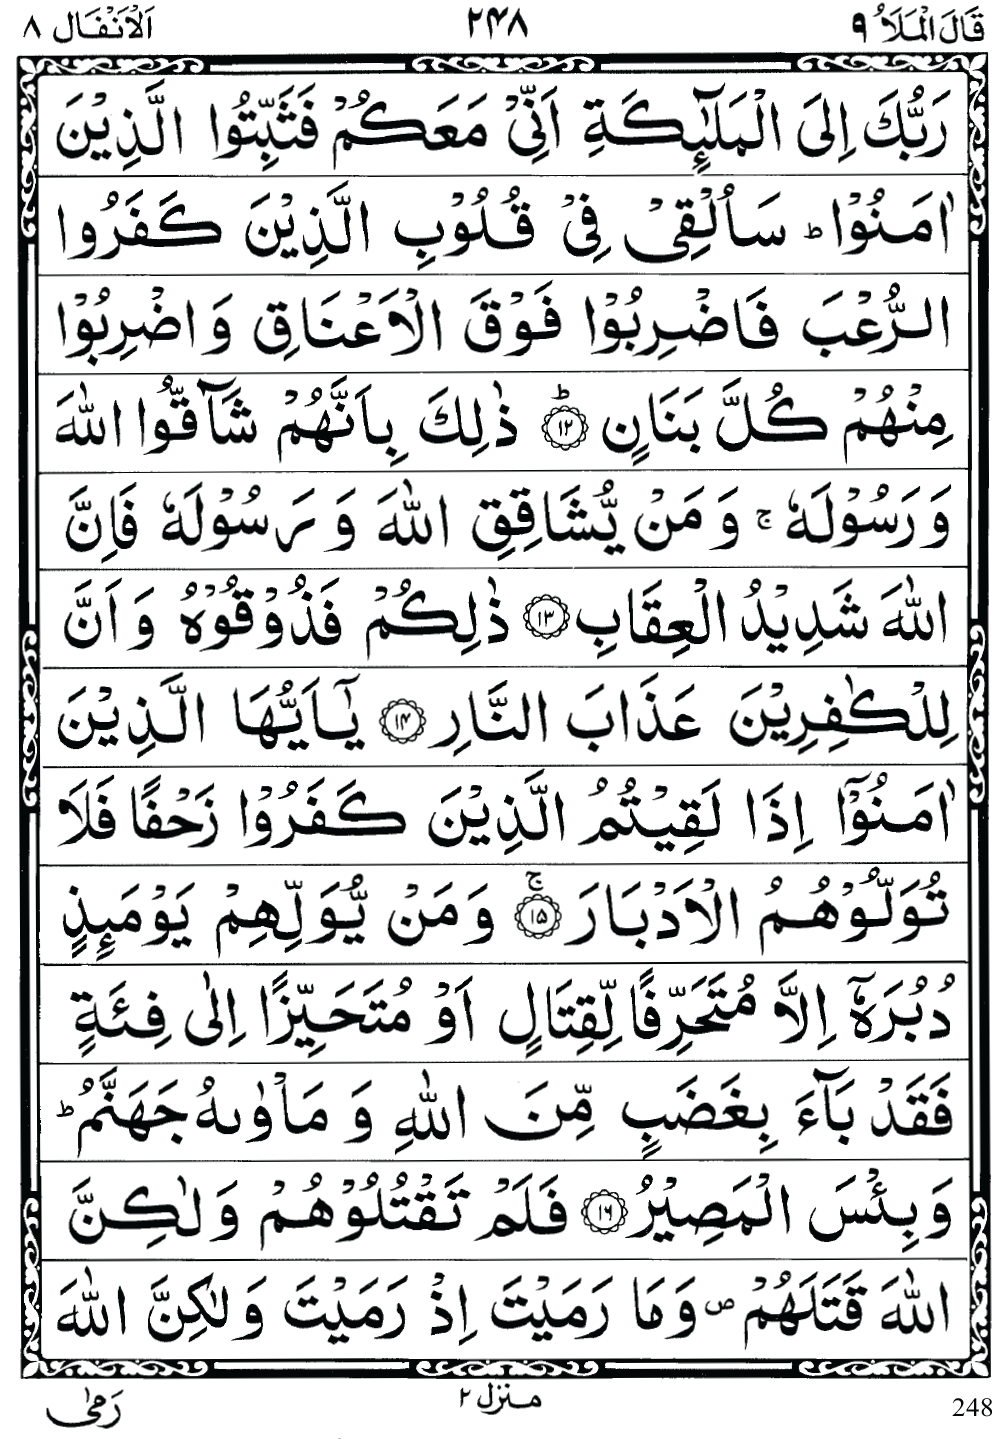 قَالَ الْمَلَاُ ٩ ٢٤٨ اَلْاَنْفَال ٨
رَبُّكَ اِلَى الْمَلٰٓئِكَةِ اَنِّیْ مَعَكُمْ فَثَبِّتُوا الَّذِیْنَ
اٰمَنُوْا ؕ سَاُلْقِیْ فِیْ قُلُوْبِ الَّذِیْنَ كَفَرُوا
الرُّعْبَ فَاضْرِبُوْا فَوْقَ الْاَعْنَاقِ وَاضْرِبُوْا
مِنْهُمْ كُلَّ بَنَانٍ ؕ ١٢ ذٰلِكَ بِاَنَّهُمْ شَآقُّوا اللّٰهَ
وَ رَسُوْلَهٗ ۚ وَ مَنْ یُّشَاقِقِ اللّٰهَ وَ رَسُوْلَهٗ فَاِنَّ
اللّٰهَ شَدِیْدُ الْعِقَابِ ١٣ ذٰلِكُمْ فَذُوْقُوْهُ وَ اَنَّ
لِلْكٰفِرِیْنَ عَذَابَ النَّارِ ١٤ یٰۤاَیُّهَا الَّذِیْنَ
اٰمَنُوْۤا اِذَا لَقِیْتُمُ الَّذِیْنَ كَفَرُوْا زَحْفًا فَلَا
تُوَلُّوْهُمُ الْاَدْبَارَ ۚ ١٥ وَ مَنْ یُّوَلِّهِمْ یَوْمَىِٕذٍ
دُبُرَهٗۤ اِلَّا مُتَحَرِّفًا لِّقِتَالٍ اَوْ مُتَحَیِّزًا اِلٰی فِئَةٍ
فَقَدْ بَآءَ بِغَضَبٍ مِّنَ اللّٰهِ وَ مَاْوٰىهُ جَهَنَّمُ ؕ
وَ بِئْسَ الْمَصِیْرُ ١٦ فَلَمْ تَقْتُلُوْهُمْ وَ لٰكِنَّ
اللّٰهَ قَتَلَهُمْ ۪ وَ مَا رَمَیْتَ اِذْ رَمَیْتَ وَ لٰكِنَّ اللّٰهَ
رَمٰی
منزل ٢
248